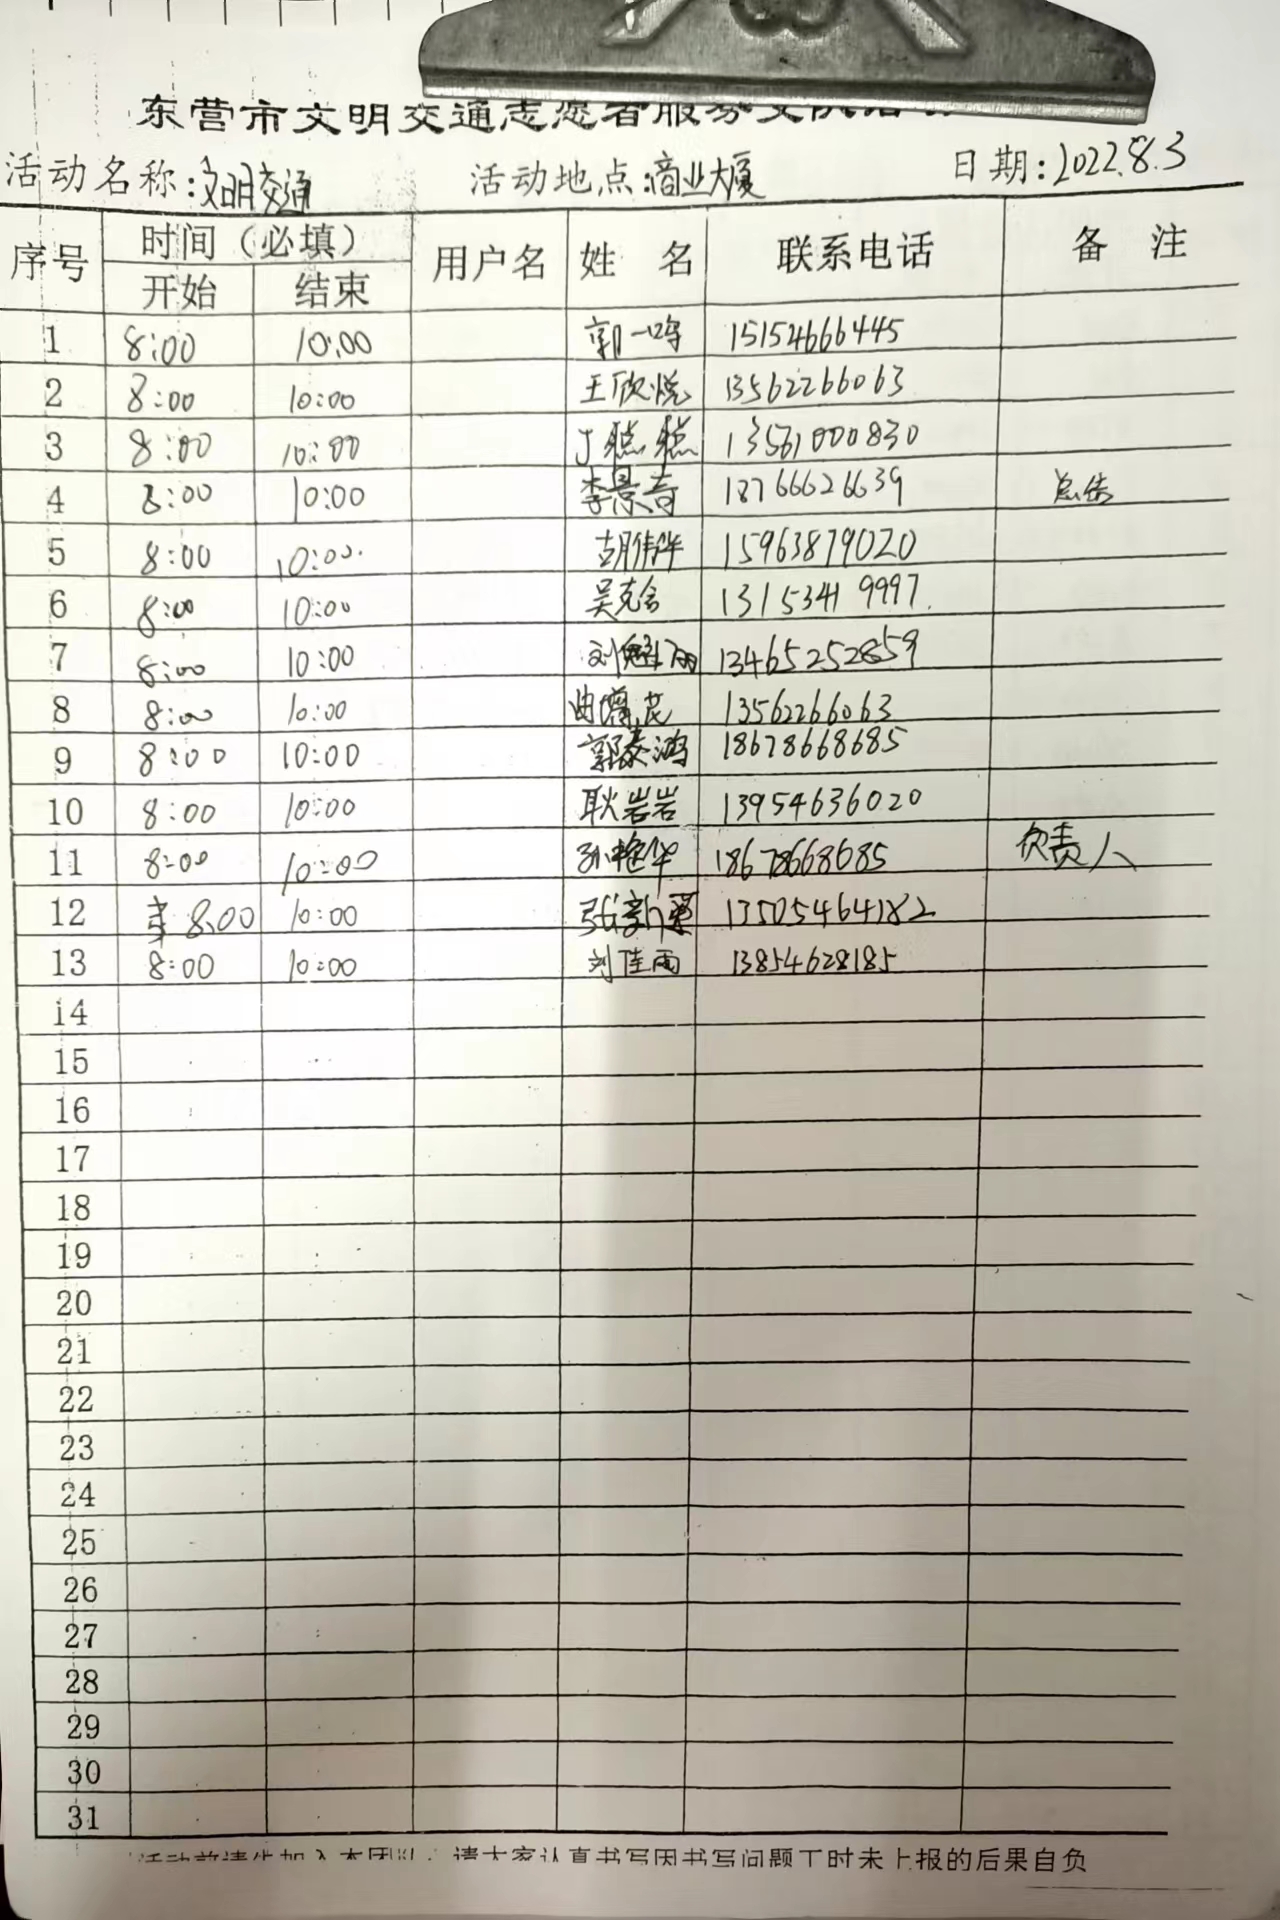 东营市文明交通志愿者服务支队活
活动名称:文明交通 活动地点:商业大厦 日期:2022.8.3
序号 时间（必填） 用户名 姓 名 联系电话 备 注
开始 结束
1 8:00 10:00 郭一鸣 15154666445
2 8:00 10:00 王欣悦 13562266063
3 8:00 10:00 13561000830
4 8:00 10:00 李景奇 18766626639 总结
5 8:00 10:00 胡伟华 15963879020
6 8:00 10:00 吴克会 13153419997
7 8:00 10:00 刘 13465252859
8 8:00 10:00 曲 13562266063
9 8:00 10:00 郭泰鸿 18678668685
10 8:00 10:00 耿岩岩 13954636020
11 8:00 10:00 孙艳华 18678668685 负责人
12 8:00 10:00 张新 13505464182
13 8:00 10:00 刘佳雨 13854628185
14
15
16
17
18
19
20
21
22
23
24
25
26
27
28
29
30
31
活动前请先加入本团队，请大家认真书写因书写问题工时未上报的后果自负